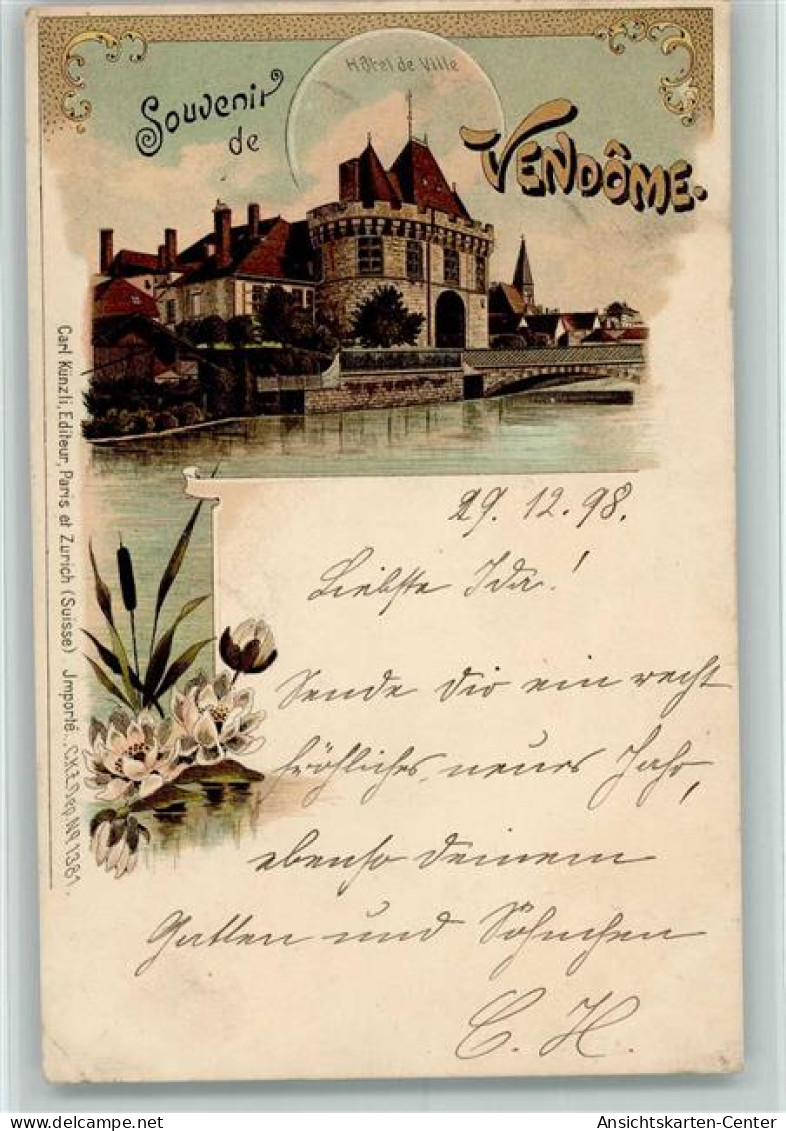 Hôtel de Ville
Souvenir
de
VENDÔME.
29. 12. 98.
Liebste Ida!
Sende dir ein recht
fröhliches neues Jahr,
ebenso deinem
Gatten und Söhnchen
C. H.
Carl Künzli, Editeur, Paris et Zurich (Suisse) Jmporté. C.K.Z. Dép. No 1381.
Ansichtskarten-Center